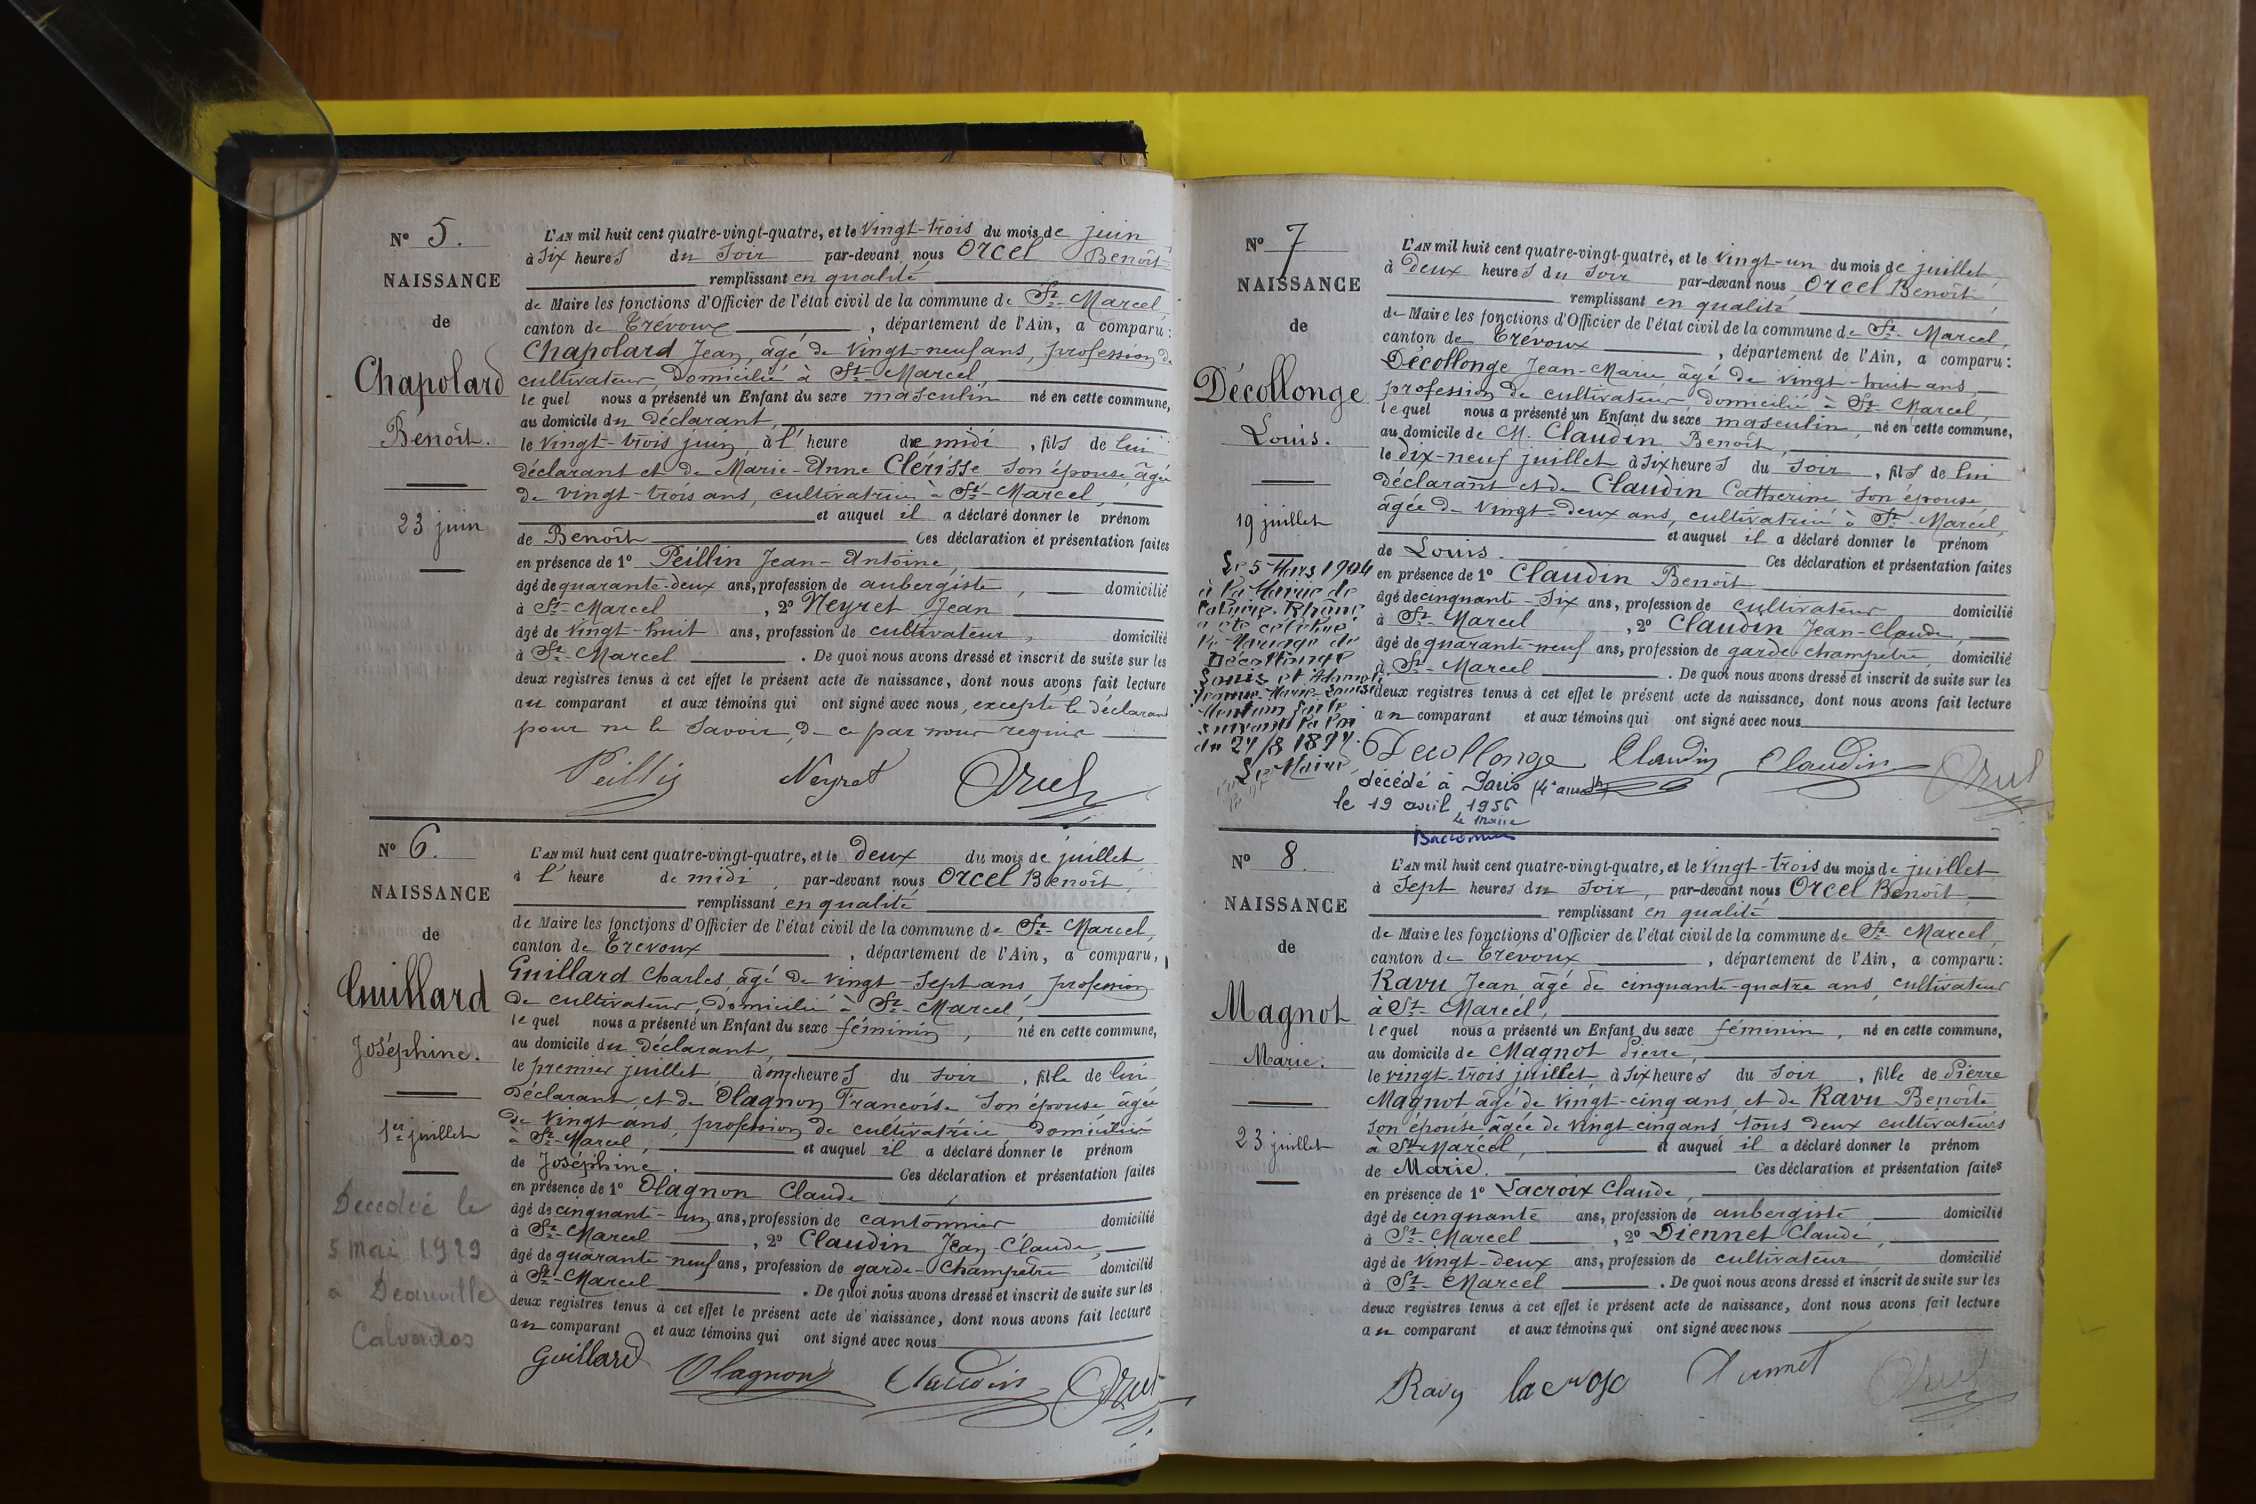 N° 5.
NAISSANCE
de
Chapolard
Benoît.
23 juin
L'AN mil huit cent quatre-vingt-quatre, et le vingt-trois du mois de juin
à six heures du soir par-devant nous Orcel Benoît
remplissant en qualité
de Maire les fonctions d'Officier de l'état civil de la commune de St- Marcel,
canton de Trévoux, département de l'Ain, a comparu:
Chapolard Jean, âgé de vingt-neuf ans, profession de
cultivateur, domicilié à St- Marcel
lequel nous a présenté un Enfant du sexe masculin né en cette commune,
au domicile du déclarant,
le vingt-trois juin, à l'heure de midi, fils de lui
déclarant et de Marie-Anne Clérisse son épouse âgée
de vingt-trois ans, cultivatrice à St- Marcel,
et auquel il a déclaré donner le prénom
de Benoît Ces déclaration et présentation faites
en présence de 1° Peillin Jean-Antoine,
âgé de quarante-deux ans, profession de aubergiste, domicilié
à St- Marcel, 2° Neyret Jean
âgé de vingt-huit ans, profession de cultivateur, domicilié
à St- Marcel. De quoi nous avons dressé et inscrit de suite sur les
deux registres tenus à cet effet le présent acte de naissance, dont nous avons fait lecture
au comparant et aux témoins qui ont signé avec nous, excepté le déclarant
pour ne le savoir, de ce par nous requis
Peillin Neyret Orcel
N° 6.
NAISSANCE
de
Guillard
Joséphine.
1er juillet
Décédée le
5 mai 1929
à Deauville
Calvados
L'AN mil huit cent quatre-vingt-quatre, et le deux du mois de juillet
à l'heure de midi, par-devant nous Orcel Benoît,
remplissant en qualité
de Maire les fonctions d'Officier de l'état civil de la commune de St- Marcel,
canton de Trévoux, département de l'Ain, a comparu,
Guillard Charles, âgé de vingt-sept ans, profession
de cultivateur, domicilié à St- Marcel,
lequel nous a présenté un Enfant du sexe féminin, né en cette commune,
au domicile du déclarant,
le premier juillet à onze heures du soir, fille de lui
déclarant et de Olagnon Françoise son épouse âgée
de vingt ans, profession de cultivatrice domiciliée
à St- Marcel, et auquel il a déclaré donner le prénom
de Joséphine. Ces déclaration et présentation faites
en présence de 1° Olagnon Claude,
âgé de cinquante-un ans, profession de cantonnier domicilié
à St- Marcel, 2° Claudin Jean-Claude,
âgé de quarante-neuf ans, profession de garde-champêtre domicilié
à St- Marcel. De quoi nous avons dressé et inscrit de suite sur les
deux registres tenus à cet effet le présent acte de naissance, dont nous avons fait lecture
au comparant et aux témoins qui ont signé avec nous
Guillard Olagnon Claudin Orcel
N° 7
NAISSANCE
de
Décollonge
Louis.
19 juillet
Le 5 Mars 1904
à la Mairie de
Caluire-Rhône
a été célébré
le Mariage de
Décollonge
Louis et
Jeanne Marie Louise
Mention faite
suivant la loi
du 24/8 1897.
Le Maire
L'AN mil huit cent quatre-vingt-quatre, et le vingt-un du mois de juillet
à deux heures du soir par-devant nous Orcel Benoît
remplissant en qualité
de Maire les fonctions d'Officier de l'état civil de la commune de St- Marcel,
canton de Trévoux, département de l'Ain, a comparu:
Décollonge Jean-Marie âgé de vingt-huit ans
profession de cultivateur, domicilié à St- Marcel,
lequel nous a présenté un Enfant du sexe masculin, né en cette commune,
au domicile de M. Claudin Benoît,
le dix-neuf juillet à six heures du soir, fils de lui
déclarant et de Claudin Catherine son épouse
âgée de vingt-deux ans, cultivatrice à St- Marcel,
et auquel il a déclaré donner le prénom
de Louis. Ces déclaration et présentation faites
en présence de 1° Claudin Benoît
âgé de cinquante-six ans, profession de cultivateur domicilié
à St- Marcel, 2° Claudin Jean-Claude,
âgé de quarante-neuf ans, profession de garde champêtre, domicilié
à St- Marcel. De quoi nous avons dressé et inscrit de suite sur les
deux registres tenus à cet effet le présent acte de naissance, dont nous avons fait lecture
au comparant et aux témoins qui ont signé avec nous
Decollonge Claudin Claudin Orcel
décédé à Paris
le 19 avril 1956
Le Maire
N° 8.
NAISSANCE
de
Magnot
Marie.
23 juillet
L'AN mil huit cent quatre-vingt-quatre, et le vingt-trois du mois de juillet
à sept heures du soir, par-devant nous Orcel Benoît
remplissant en qualité
de Maire les fonctions d'Officier de l'état civil de la commune de St- Marcel,
canton de Trévoux, département de l'Ain, a comparu:
Ravu Jean âgé de cinquante-quatre ans, cultivateur
à St- Marcel,
lequel nous a présenté un Enfant du sexe féminin, né en cette commune,
au domicile de Magnot Pierre,
le vingt-trois juillet à six heures du soir, fille de Pierre
Magnot âgé de vingt-cinq ans, et de Ravu Benoîte
son épouse âgée de vingt-cinq ans tous deux cultivateurs
à St- Marcel, et auquel il a déclaré donner le prénom
de Marie. Ces déclaration et présentation faites
en présence de 1° Lacroix Claude,
âgé de cinquante ans, profession de aubergiste, domicilié
à St- Marcel, 2° Diennet Claude,
âgé de vingt-deux ans, profession de cultivateur domicilié
à St- Marcel. De quoi nous avons dressé et inscrit de suite sur les
deux registres tenus à cet effet le présent acte de naissance, dont nous avons fait lecture
au comparant et aux témoins qui ont signé avec nous
Ravu lacroix Diennet Orcel